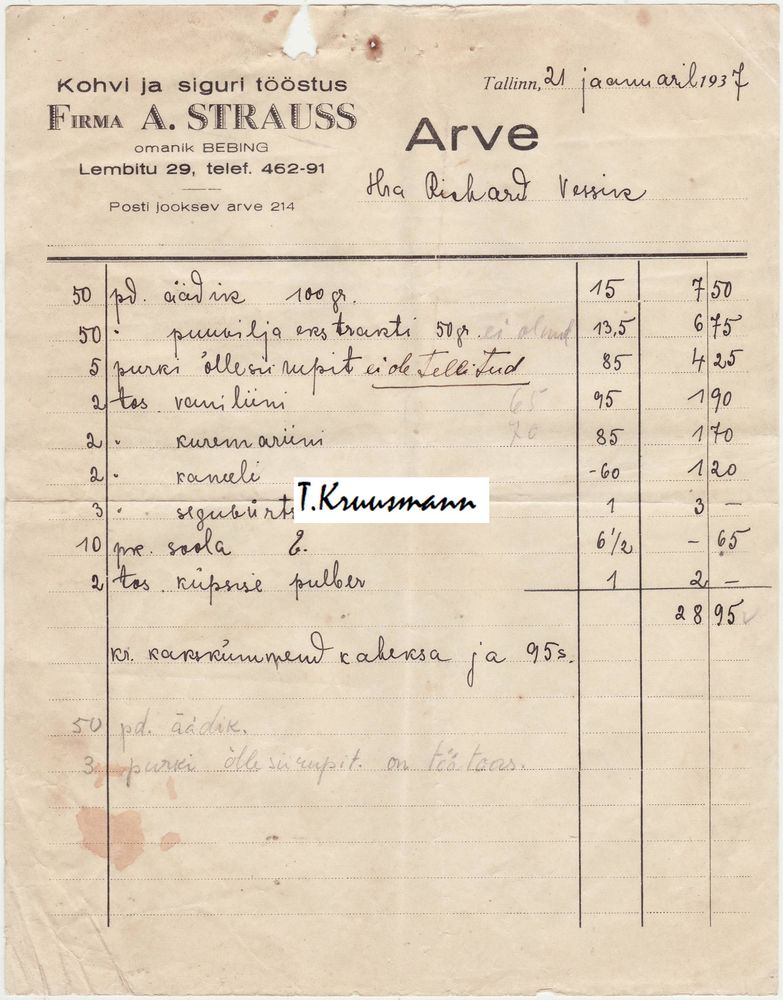 Kohvi ja siguri tööstus
FIRMA A. STRAUSS
omanik BEBING
Lembitu 29, telef. 462-91
Posti jooksev arve 214
Tallinn, 21 jaanuaril 1937
Arve
Hra Richard Vessik
50 pd. äädik 100 gr. 15 7 50
50 " puuvilja ekstrakti 50 gr. ei olnud 13,5 6 75
5 purki õllesiirupit ei ole tellitud 85 4 25
2 tos vaniliini 65 95 1 90
2 " kuremariini 70 85 1 70
2 " kaneeli -60 1 20
3 " 1 3 -
T.Kruusmann
10 pk. soola E. 6 1/2 - 65
2 tos. küpsise pulber 1 2 -
28 95
kr. kakskümmend kaheksa ja 95 s.
50 pd. äädik.
3 purki õllesiirupit. on töötoas.